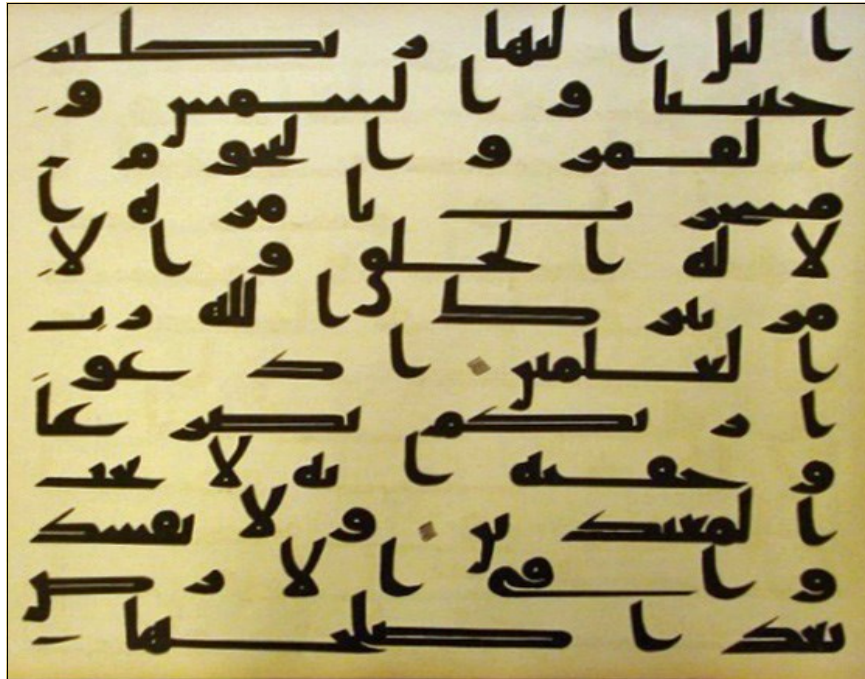 اليل النهار يطلبه
حثيثا والشمس و
القمر والنجوم
مسخرت بامره ا
لا له الخلق والا
مر تبرك الله رب
العلمين ادعو
ا ربكم تضرعا
وخفيه انه لا يحب
المعتدين ولا تفسد
وا في الارض
بعد اصلحها